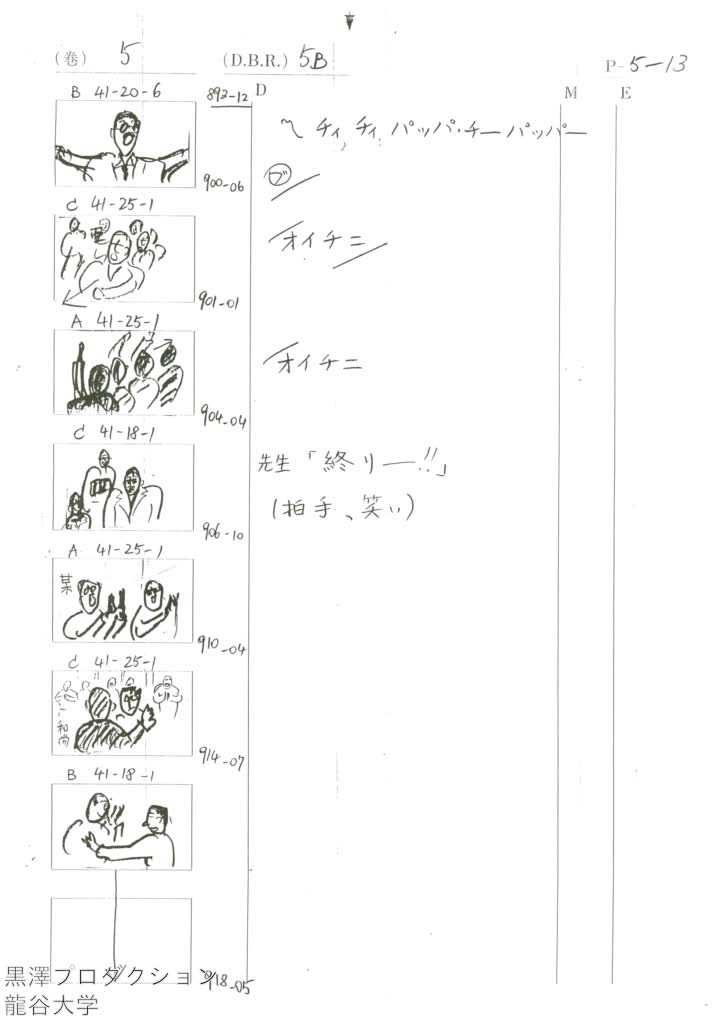 (巻) 5 (D.B.R.) 5B P-5-13
B 41-20-6 893-12 D M E
〽 チィ, チィ, パッパ・チーパッパー
900-06 ブ
C 41-25-1
オイチニ
901-01
A 41-25-1
オイチニ
904-04
C 41-18-1
先生「終リー!!」
906-10 (拍手、笑い)
A 41-25-1
某
910-04
C 41-25-1
和尚
914-07
B 41-18-1
918-05
黒澤プロダクション
龍谷大学